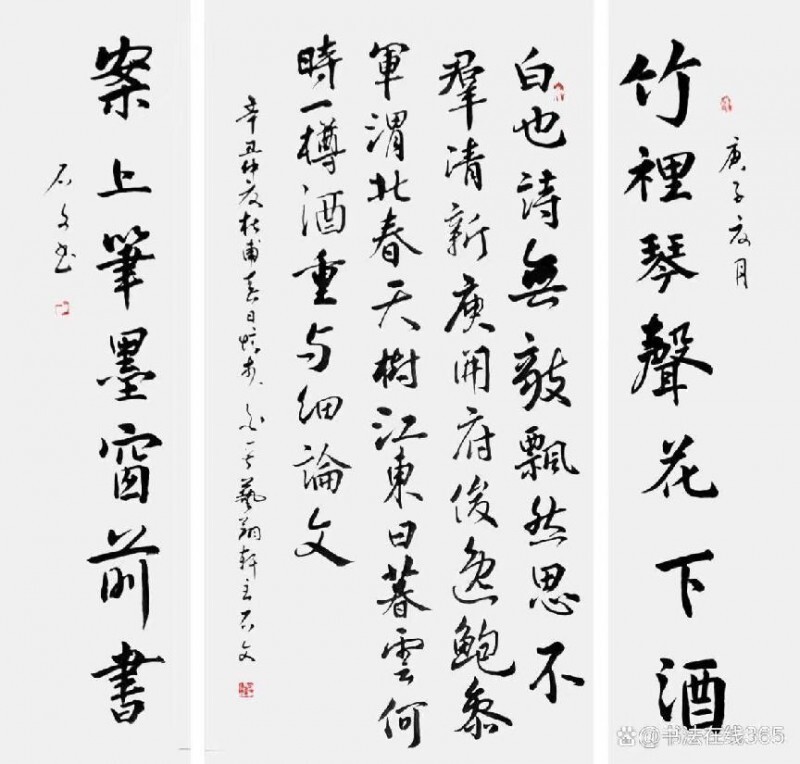 庚子夏月
竹裡琴聲花下酒
白也詩無敵飄然思不
羣清新庾開府俊逸鮑參
軍渭北春天樹江東日暮雲何
時一樽酒重与細論文
辛丑仲夏杜甫春日憶李白一首藝翔軒主石文
案上筆墨窗前書
石文书
@书法在线365